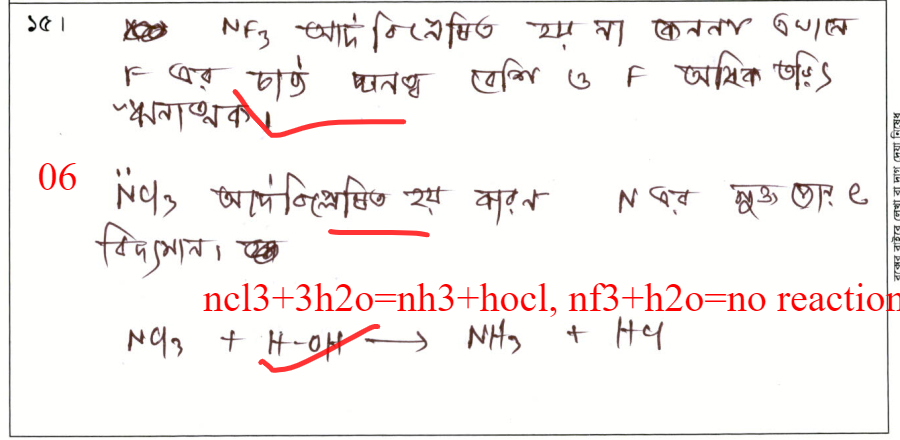 ১৫। NF3 আর্দ্র বিশ্লেষিত হয় না কেননা এখানে
F এর চার্জ ঘনত্ব বেশি ও F অধিক তড়িৎ
ঋনাত্মক।
06
N̈Cl3 আর্দ্রবিশ্লেষিত হয় কারন N এর মুক্ত জোর e
বিদ্যমান।
ncl3+3h2o=nh3+hocl, nf3+h2o=no reaction
NCl3 + H-OH → NH3 + HCl
বক্সের বাইরে লেখা বা দাগ দেয়া নিষেধ